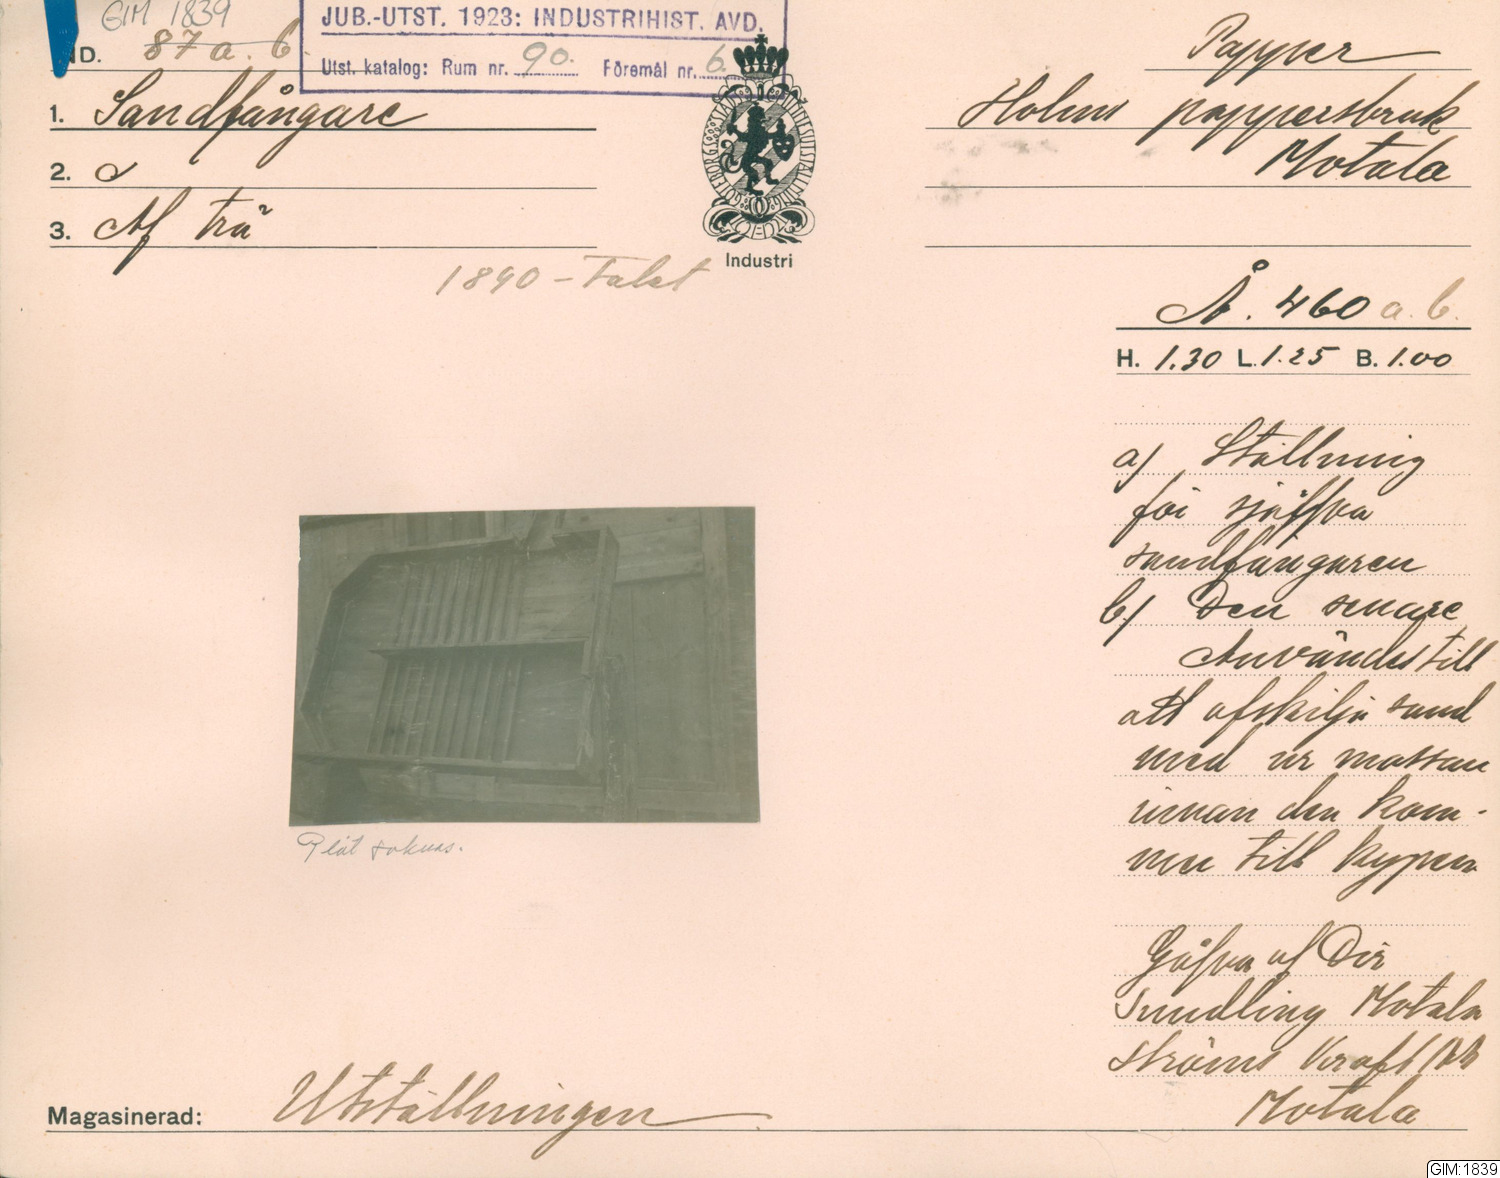 GIM 1839
ND. 87 a. b
JUB.-UTST. 1923: INDUSTRIHIST. AVD.
Utst. katalog: Rum nr. 90. Föremål nr. 6.
1. Sandfångare
2. d
3. Af trä
1890-Talet
Industri
Papper
Holms pappersbruk
Motala
Å. 460 a. b.
H. 1.30 L. 1.25 B. 1.00
a) Ställning
för sjelfva
sandfångaren
b) Den senare
Användes till
att afskilja sand
med ur massan
innan den kom-
mer till kypen
Gåfva af Dir
Sundling Motala
Ströms Kraft
Motala
Plåt saknas.
Magasinerad: Utställningen
GIM:1839